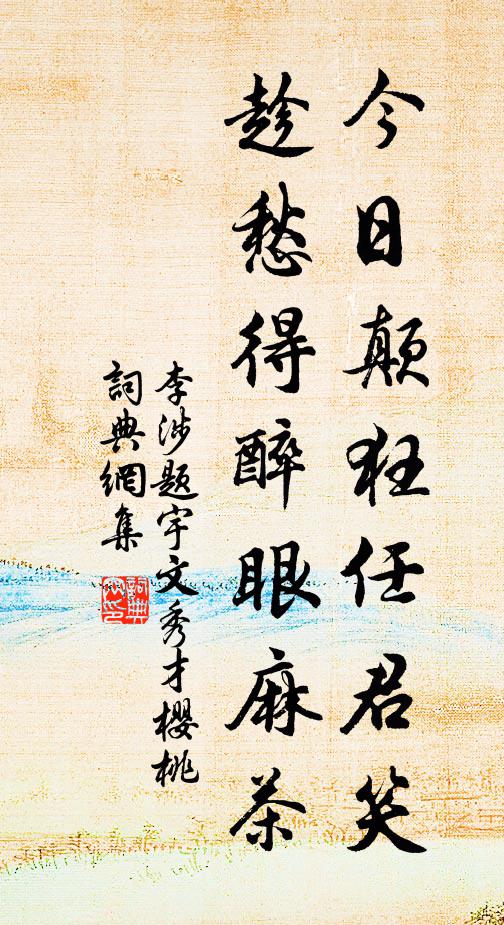 今日顛狂任君笑
趁愁得醉眼麻茶
李涉题宇文秀才櫻桃
詞典網集